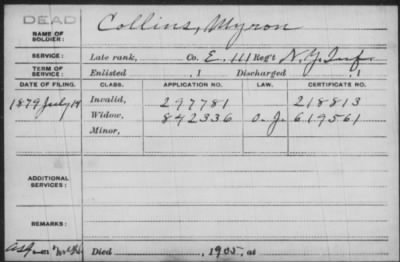 DEAD
NAME OF SOLDIER: Collins, Myron
SERVICE: Late rank, Co. E. 111 Reg't N.Y. Inf.
TERM OF SERVICE: Enlisted , 1 Discharged , 1
DATE OF FILING. CLASS. APPLICATION NO. LAW. CERTIFICATE NO.
1879 July 14 Invalid, 297781 218813
Widow, 842336 O. J. 619561
Minor,
ADDITIONAL SERVICES:
REMARKS:
Died , 1905, at